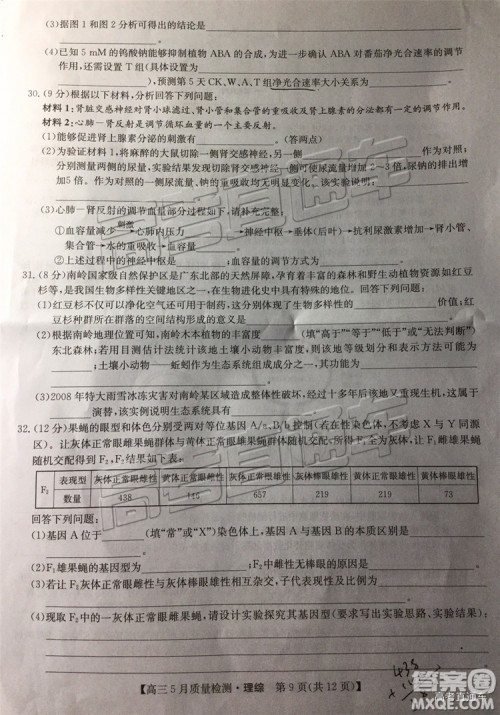 (3)据图1和图2分析可得出的结论是
。
(4)已知5 mM的钨酸钠能够抑制植物ABA的合成,为进一步确认ABA对番茄净光合速率的调节
作用,还需设置T组(具体设置为
),预测第5天CK、W、A、T组净光合速率大小关系为。
30.(9分)根据以下材料,分析回答下列问题:
材料1:肾脏交感神经对肾小球滤过、肾小管和集合管的重吸收及肾上腺素的分泌都有一定的调节作用。
材料2:心肺—肾反射是调节循环血量的一个重要的反射。
(1)能够促进肾上腺素分泌的刺激有。(答两点)
(2)为验证材料1,将麻醉的大鼠切除一侧肾交感神经,另一侧作为对照;
分别测量两侧的尿量,实验结果发现可使尿流量增加2~3倍,尿钠的排出增
增加5倍。作为对照,可使尿流量减少。
(3)心肺—肾反射的调节血量部分过程如下,请补充完整:
①血容量减少→心肺内压力 刺激 →→神经中枢→→抗利尿激素增多→肾小管、
集合管→水的重吸收→血容量。
②据上述过程可知,血容量的调节方式为。
31.(8分)南岭国家级自然保护区是广东北部的天然屏障,孕育着丰富的森林和野生动植物资源如红豆
杉等,是我国重要的生物多样性关键地区之一,在生物进化史中具有特殊的地位。回答问题:
(1)红豆杉不仅可以净化空气,还可用于制药,这分别体现了生物多样性的价值;红
豆杉种群所在群落的空间结构包括。
(2)根据南岭地理位置可知,南岭木本植物的丰富度(填“高于”“等于”“低于”或“无法判断”)
东北森林;若用目测估计法统计该地土壤小动物丰富度,则需要按
;土壤小动物——蚯蚓作为生态系统组成成分之一,其功能是
。
(3)2008年特大雨雪冰冻灾害对南岭某区域造成整体性损坏,但最近十多年来该地发生了
演替,该实例说明生态系统具有。
32.(12分)果蝇的眼型和体色分别受两对等位基因A/a、B/b控制(若在性染色体上,不考虑X与Y同源
区)。让灰体正常眼雌果蝇群体与黄体正常眼雄果蝇群体随机交配;所得F₁全为灰体正常眼,让F₁雌雄果蝇
随机交配得F₂,F₂结果如下表:
F₂ 表现型 灰体正常眼雌性 黄体正常眼雌性 灰体正常眼雄性 灰体棒眼雄性 黄体正常眼雄性 黄体棒眼雄性
数量 438 146 657 219 219 73
回答下列问题:
(1)基因A位于(填“常”或“X”)染色体上,基因A与基因B的本质区别是
。
(2)F₁雄果蝇的基因型为;F₂中雌性无棒眼的原因为。
(3)若让F₂灰体正常眼雌性与灰体棒眼雄性随机交配,则子代的表现型及比例为
。
(4)现取F₂中的一灰体正常眼雌果蝇,请设计实验探究其基因型。(要求写出实验思路、实验结果)
。
【高三5月质量检测·理综 第9页(共12页)】
438
高考直通车